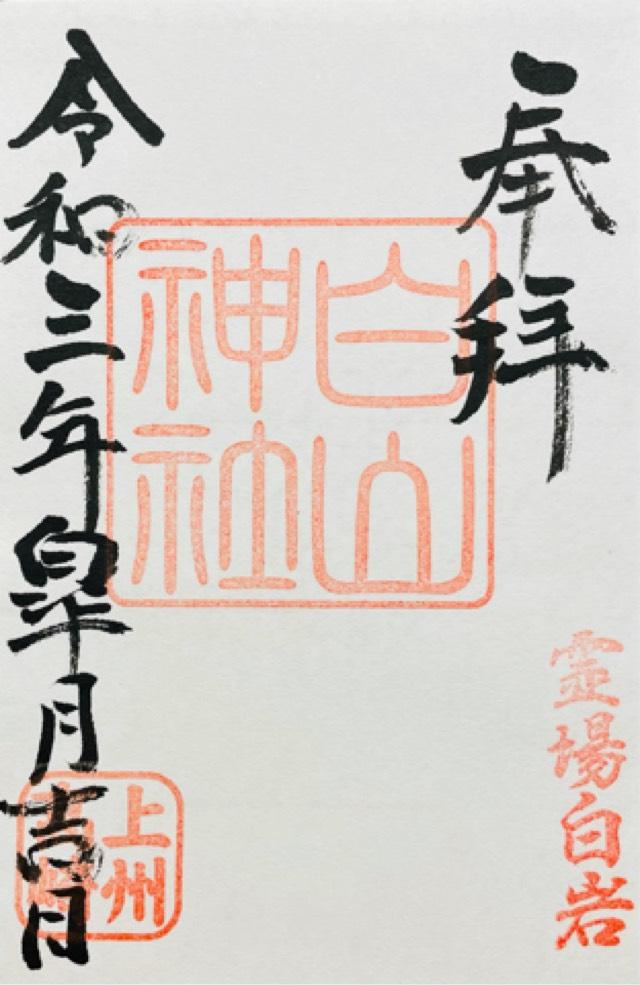 奉拝
霊場白岩
白山
神社
令和三年皐月吉日
上州